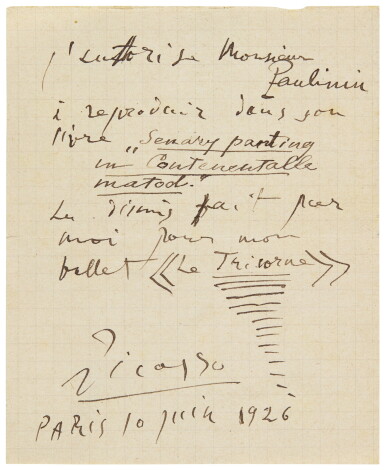 j'autorise Monsieur
Paulinin
à reproduir dans son
livre "Senary panting
in Contenentalle
matod."
Le dismis fait par
moi pour mon
ballet «Le Tricorne»
Picasso
PARIS 10 juin 1926